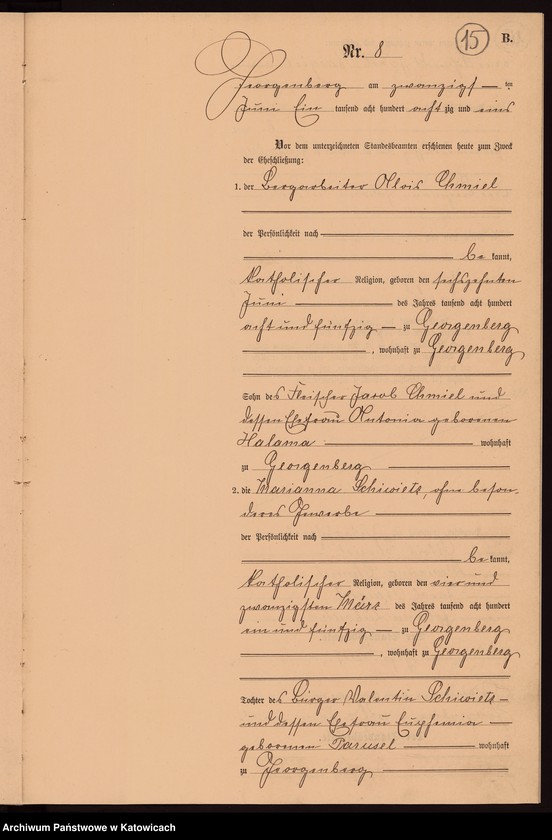 15
B.
Nr. 8
Georgenberg am zwanzigs — ten
Juni Ein tausend acht hundert acht zig und eins
Vor dem unterzeichneten Standesbeamten erschienen heute zum Zweck
der Eheschließung:
1. der Bergarbeiter Alois Chmiel
der Persönlichkeit nach
be kannt,
katholischer Religion, geboren den sechszehnten
Juni des Jahres tausend acht hundert
acht und fünfzig — zu Georgenberg
, wohnhaft zu Georgenberg
Sohn des Fleischer Jacob Chmiel und
dessen Ehefrau Antonia geborenen
Halama wohnhaft
zu Georgenberg
2. die Marianna Schiwietz, ohne beson-
deres Gewerbe
der Persönlichkeit nach
be kannt,
katholischer Religion, geboren den vier und
zwanzigsten März des Jahres tausend acht hundert
ein und fünfzig — zu Georgenberg
, wohnhaft zu Georgenberg
Tochter des Bürger Valentin Schiwietz —
und dessen Ehefrau Euphemia —
geborenen Parusel wohnhaft
zu Georgenberg
Archiwum Państwowe w Katowicach